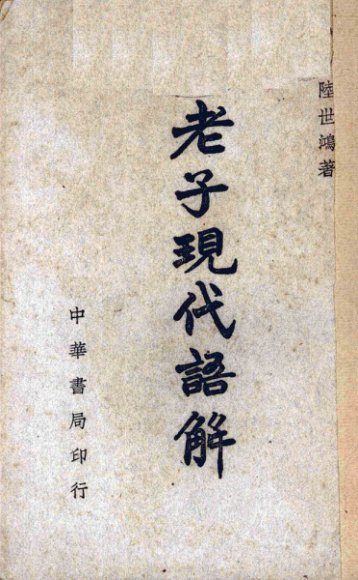 陸世鴻著
老子現代語解
中華書局印行